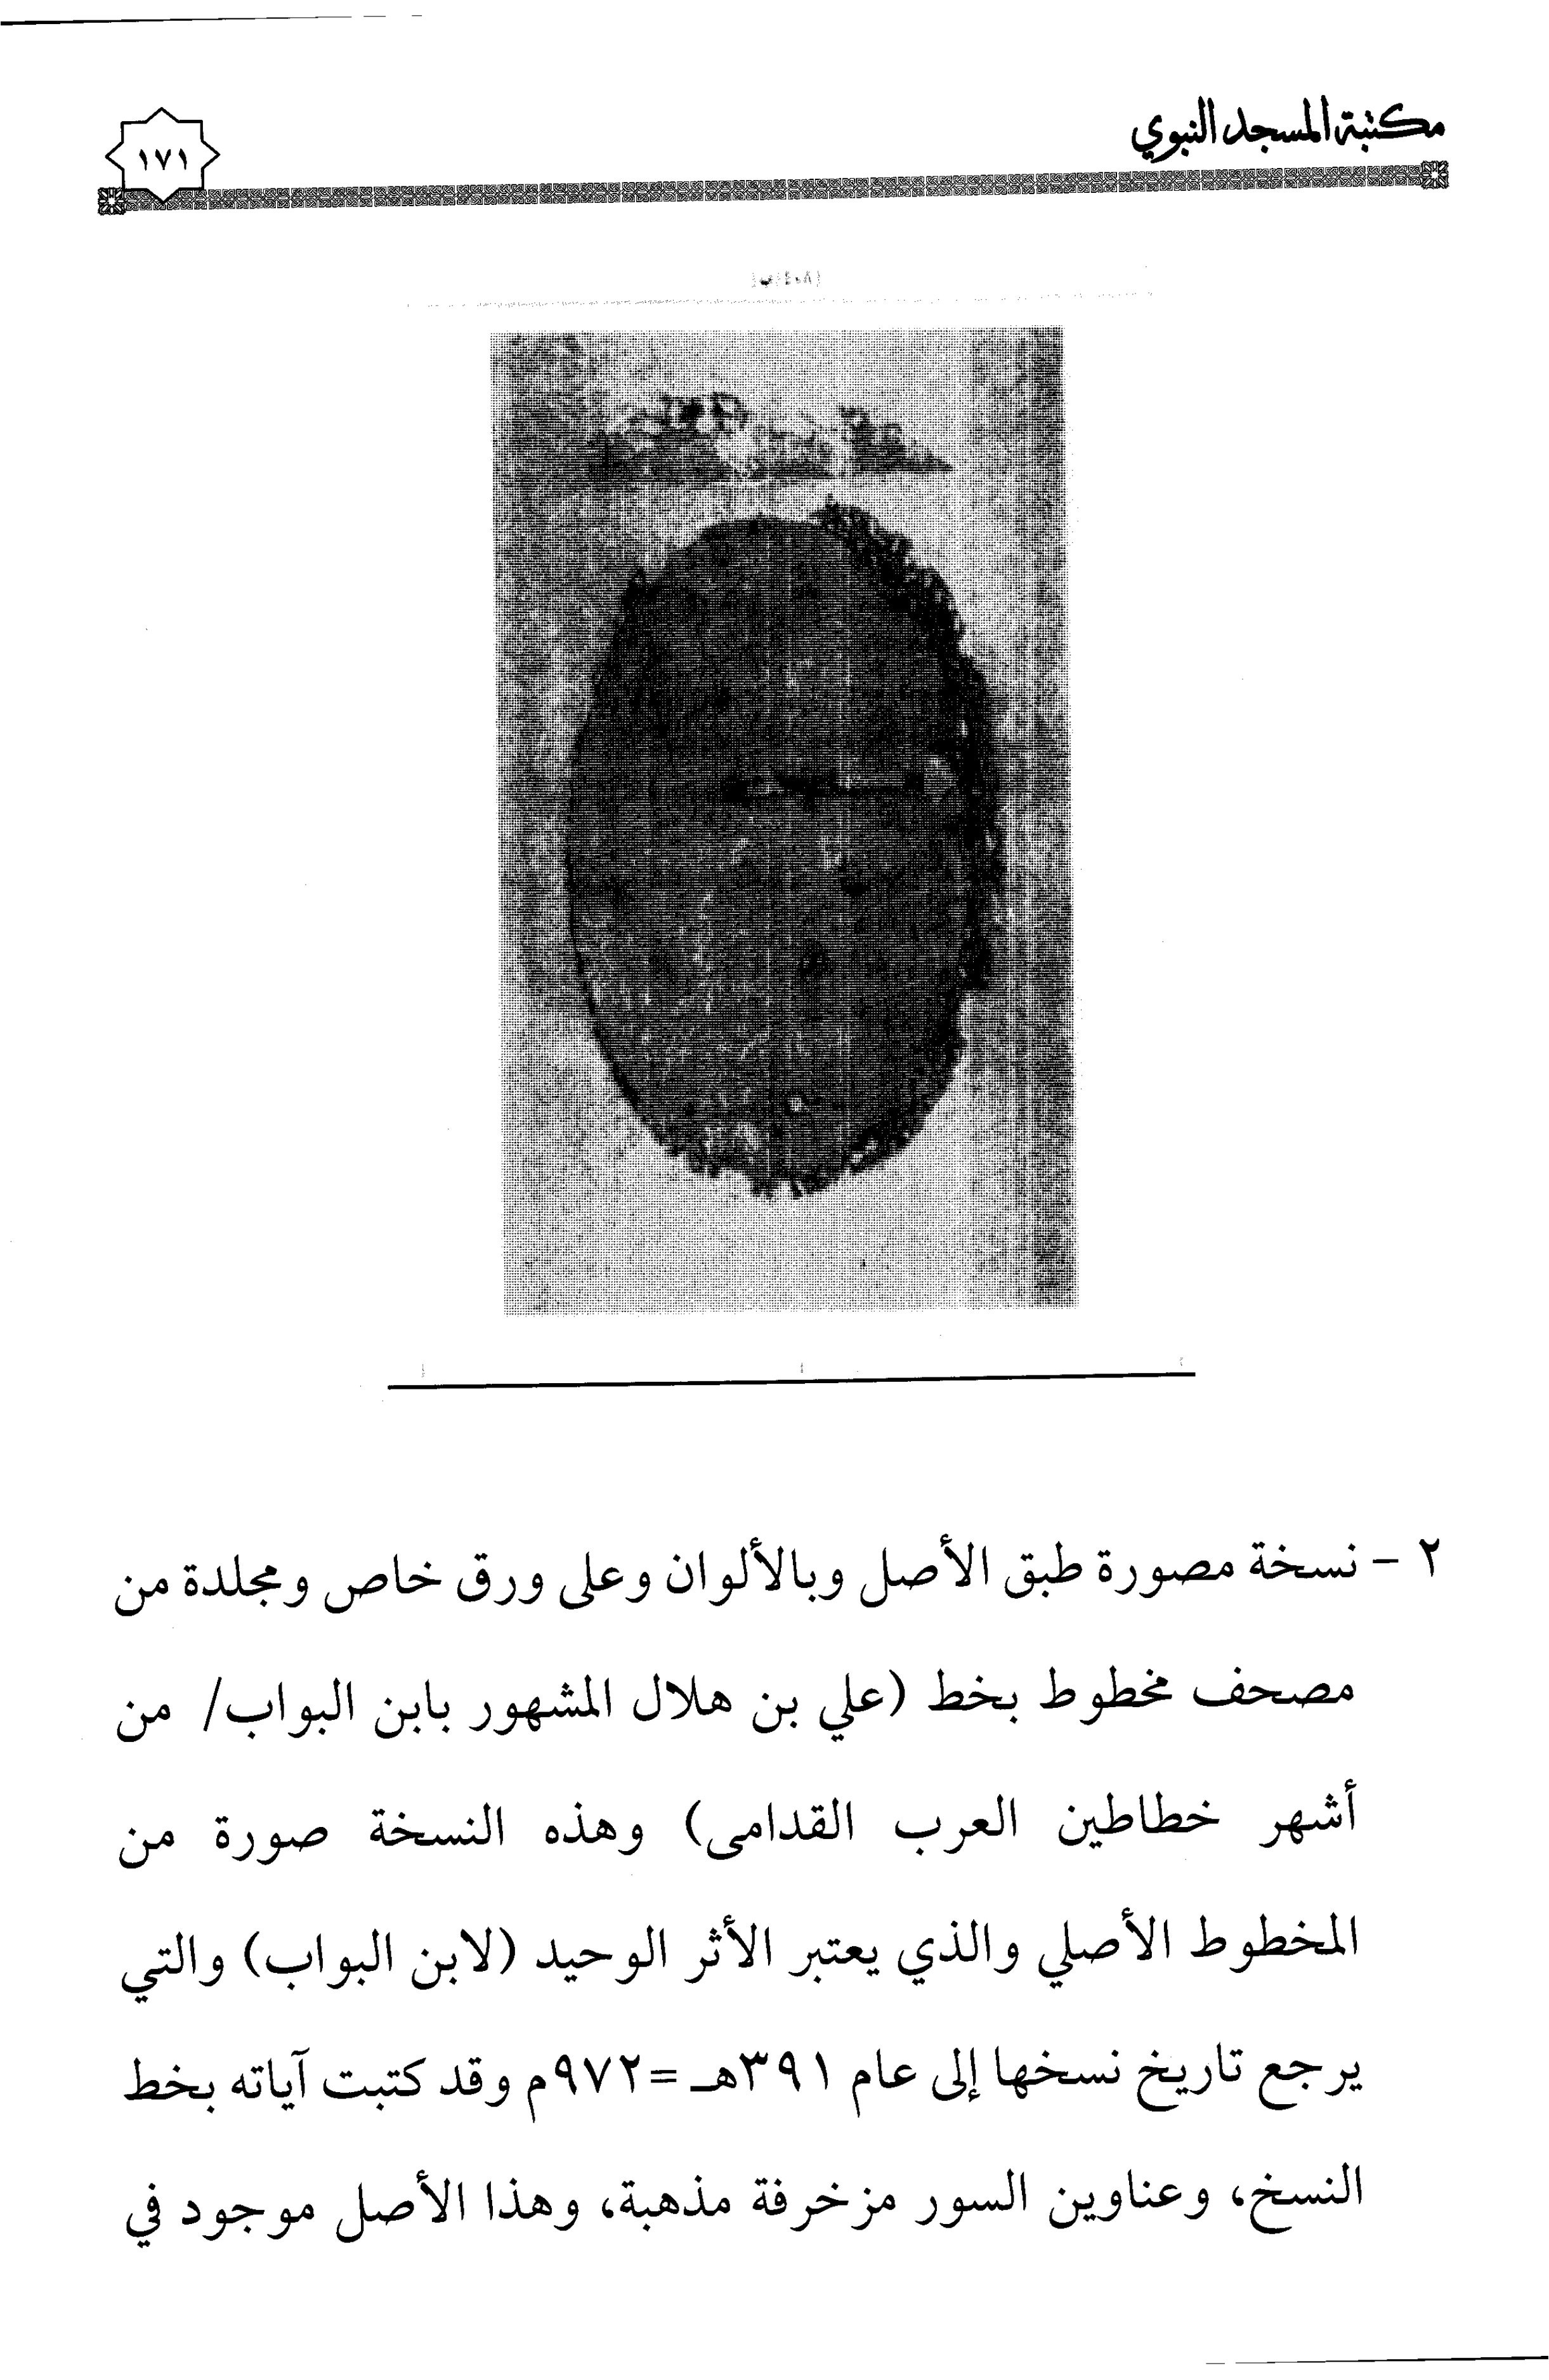 مكتبة المسجد النبوي
١٧١
٢ - نسخة مصورة طبق الأصل وبالألوان وعلى ورق خاص ومجلدة من
مصحف مخطوط بخط (علي بن هلال المشهور بابن البواب/ من
أشهر خطاطين العرب القدامى) وهذه النسخة صورة من
المخطوط الأصلي والذي يعتبر الأثر الوحيد (لابن البواب) والتي
يرجع تاريخ نسخها إلى عام ٣٩١هـ =٩٧٢م وقد كتبت آياته بخط
النسخ، وعناوين السور مزخرفة مذهبة، وهذا الأصل موجود في